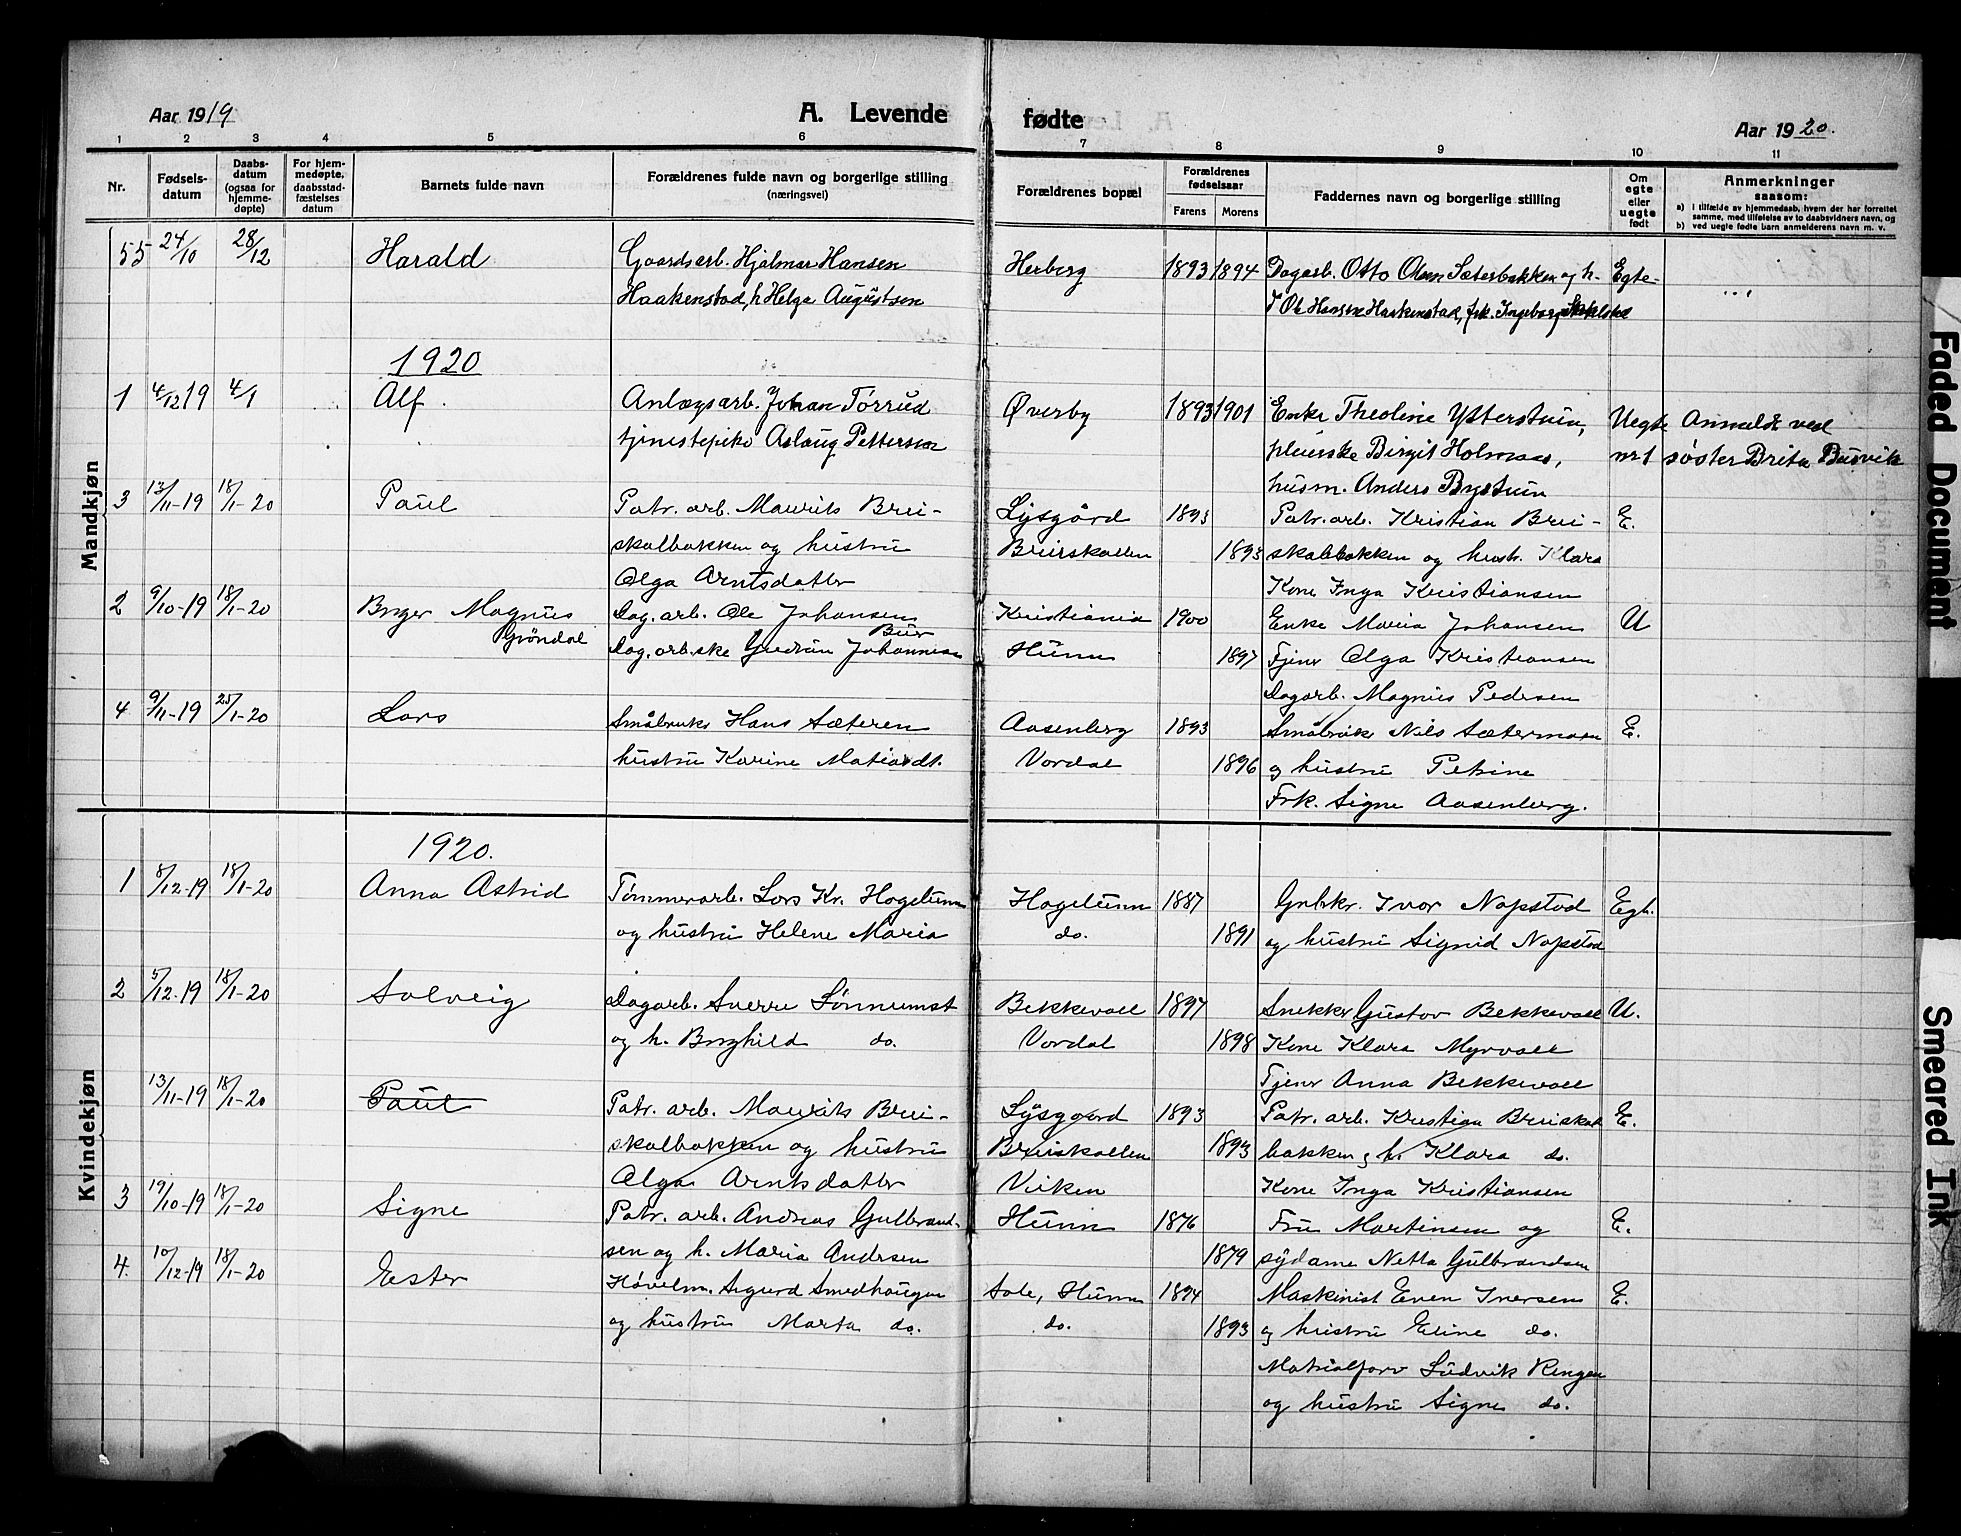 Aar 1919
A. Levende
fødte
Aar 1920.
1 2 3 4 5 6 7 8 9 10 11
Nr.
Fødsels-
datum
Daabs-
datum
(ogsaa for
hjemme-
døpte)
For hjem-
medøpte,
daabsstad-
fæstelses
datum
Barnets fulde navn
Forældrenes fulde navn og borgerlige stilling
(næringsvei)
Forældrenes bopæl
Forældrenes
fødselsaar
Farens Morens
Faddernes navn og borgerlige stilling
Om
egte
eller
uegte
født
Anmerkninger
saasom:
a) I tilfælde av hjemmedaab, hvem der har forrettet
samme, med tilføielse av to daabsvidners navn, og
b) ved uegte fødte barn anmelderens navn m. v.
Mandkjøn
55 24/10 28/12 Harald Gaardsarb. Hjalmar Hansen Herberg 1893 1894 Dagarb. Otto Olsen Sæterbakken og h. Egte
Haakenstad, h Helga Augustsen Ole Hansen Haakenstad, frk. Ingeborg
1920
1 4/12 19 4/1 Alf. Anlægsarb. Johan Tørrud Øverby 1893 1901 Enke Theoline Ytterstuin, Uegte Anmeldt ved
tjenestepike Aslaug Pettersen pleierske Birgit Holmaas, nr 1 søster Brita Busvik
husm. Anders Bystuin
3 13/11-19 18/1-20 Paul Patr. arb. Maurits Brei- Lysgård 1893 Patr. arb. Kristian Brei- E.
skalbakken og hustru Breiskallen 1893 skalbakken og hustr. Klara
Olga Arntsdatter Kone Inga Kristiansen
2 9/10-19 18/1-20 Birger Magnus Dag. arb. Ole Johansen Kristiania 1900 Enke Maria Johansen U
Gröndal Bur
Dag. arb.ske Gudrun Johannesen Hunn 1897 Tjener Olga Kristiansen
Dagarb. Magnus Pedersen
4 9/11-19 25/1-20 Lars Småbruker Hans Sæteren Aasenberg 1893 Småbruker Nils Sætermoen E.
hustru Karine Matiasdt. Vardal 1896 og hustru Petrine
Frk. Signe Aasenberg.
Kvindekjøn
1920.
1 8/12-19 18/1-20 Anna Astrid Tømmerarb. Lars Kr. Hagelunn Hagelunn 1887 Grbkr. Ivar Napstad Egt.
og hustru Helene Maria do. 1891 og hustru Signid Napstad
2 5/12-19 18/1-20 Solveig Dagarb. Sverre Sønnumst Bekkevoll 1897 Snekker Gustav Bekkevoll U.
og h. Borghild do. Vardal 1898 Kone Klara Myrvoll
Tjener Anna Bekkevoll
13/11-19 18/1-20 Paul Patr. arb. Maurits Brei- Lysgaard 1893 Patr. arb. Kristian Breiskal E.
skalbakken og hustru Breiskallen 1893 bakken og h. Klara do.
Olga Arntsdatter Viken Kone Inga Kristiansen
3 19/10-19 18/1-20 Signe Patr. arb. Andreas Gulbrand- Hunn 1876 Fru Martinsen og E.
sen og h. Maria Andersen 1879 sydame Netta Gulbrandsen
4. 10/12-19 18/1-20 Ester Høvelm. Sigurd Smedhaugen Sole, Hunn 1894 Maskinist Even Iversen E.
og hustru Marta do. do. 1893 og hustru Eline do.
Matrialforv Ludvik Ringen
og hustru Signe do.
Faded Document
Smeared Ink